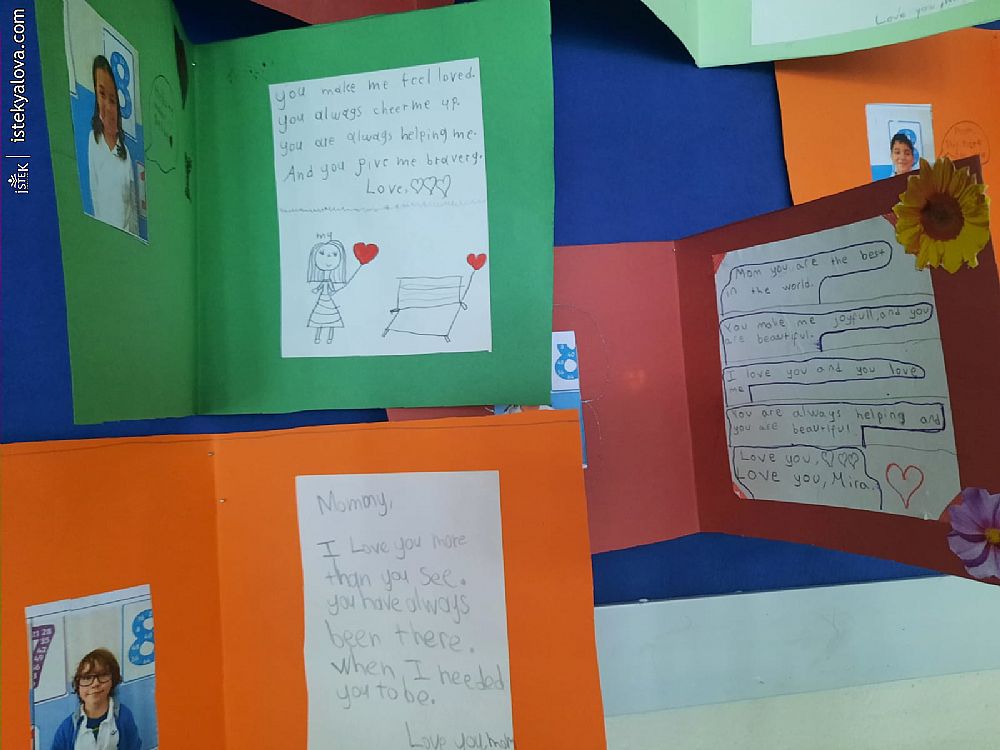 İSTEK | istekyalova.com
Love you,
you make me feel loved.
you always cheer me up.
you are always helping me.
And you give me bravery.
Love,
my
Mom you are the best
in the world.
You make me joyfull, and you
are beautiful.
I love you and you love
me
You are always helping and
you are beautiful
Love you,
Love you, Mira.
Mommy,
I Love you more
than you see.
you have always
been there.
When I needed
you to be.
Love you, mom
8
8
8
8